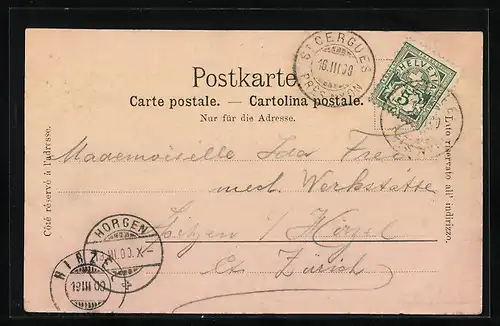 ST CERGUES
16.III.00
Postkarte.
HELVETIA
5
Carte postale. — Cartolina postale.
Nur für die Adresse.
Côté réservé à l'adresse.
Lato riservato all' indirizzo.
Mademoiselle Ida Frei
mech. Werkstätte
i/
Ct. Zürich
HORGEN
III.00.X–
HIRZEL
19 III 00